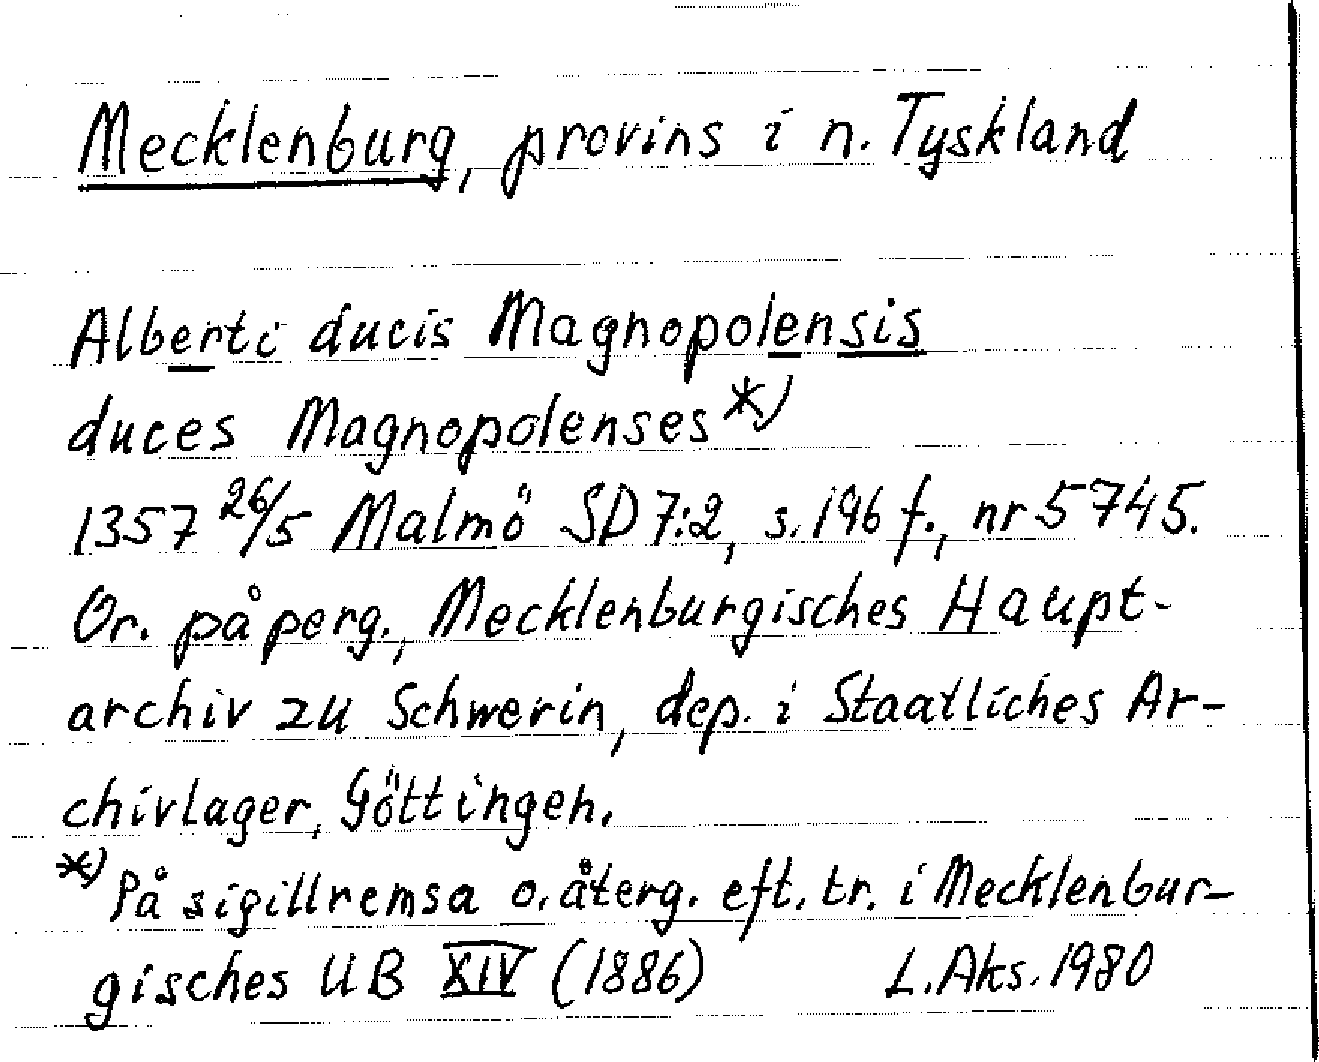 Mecklenburg, provins i n. Tyskland
Alberti ducis Magnopolensis
duces Magnopolenses*)
1357 26/5 Malmö SD 7:2, s. 196 f., nr 5745.
Or. på perg., Mecklenburgisches Haupt-
archiv zu Schwerin, dep. i Staatliches Ar-
chivlager, Göttingen.
*) På sigillremsa o. återg. eft. tr. i Mecklenbur-
gisches UB XIV (1886) L. Aks. 1980